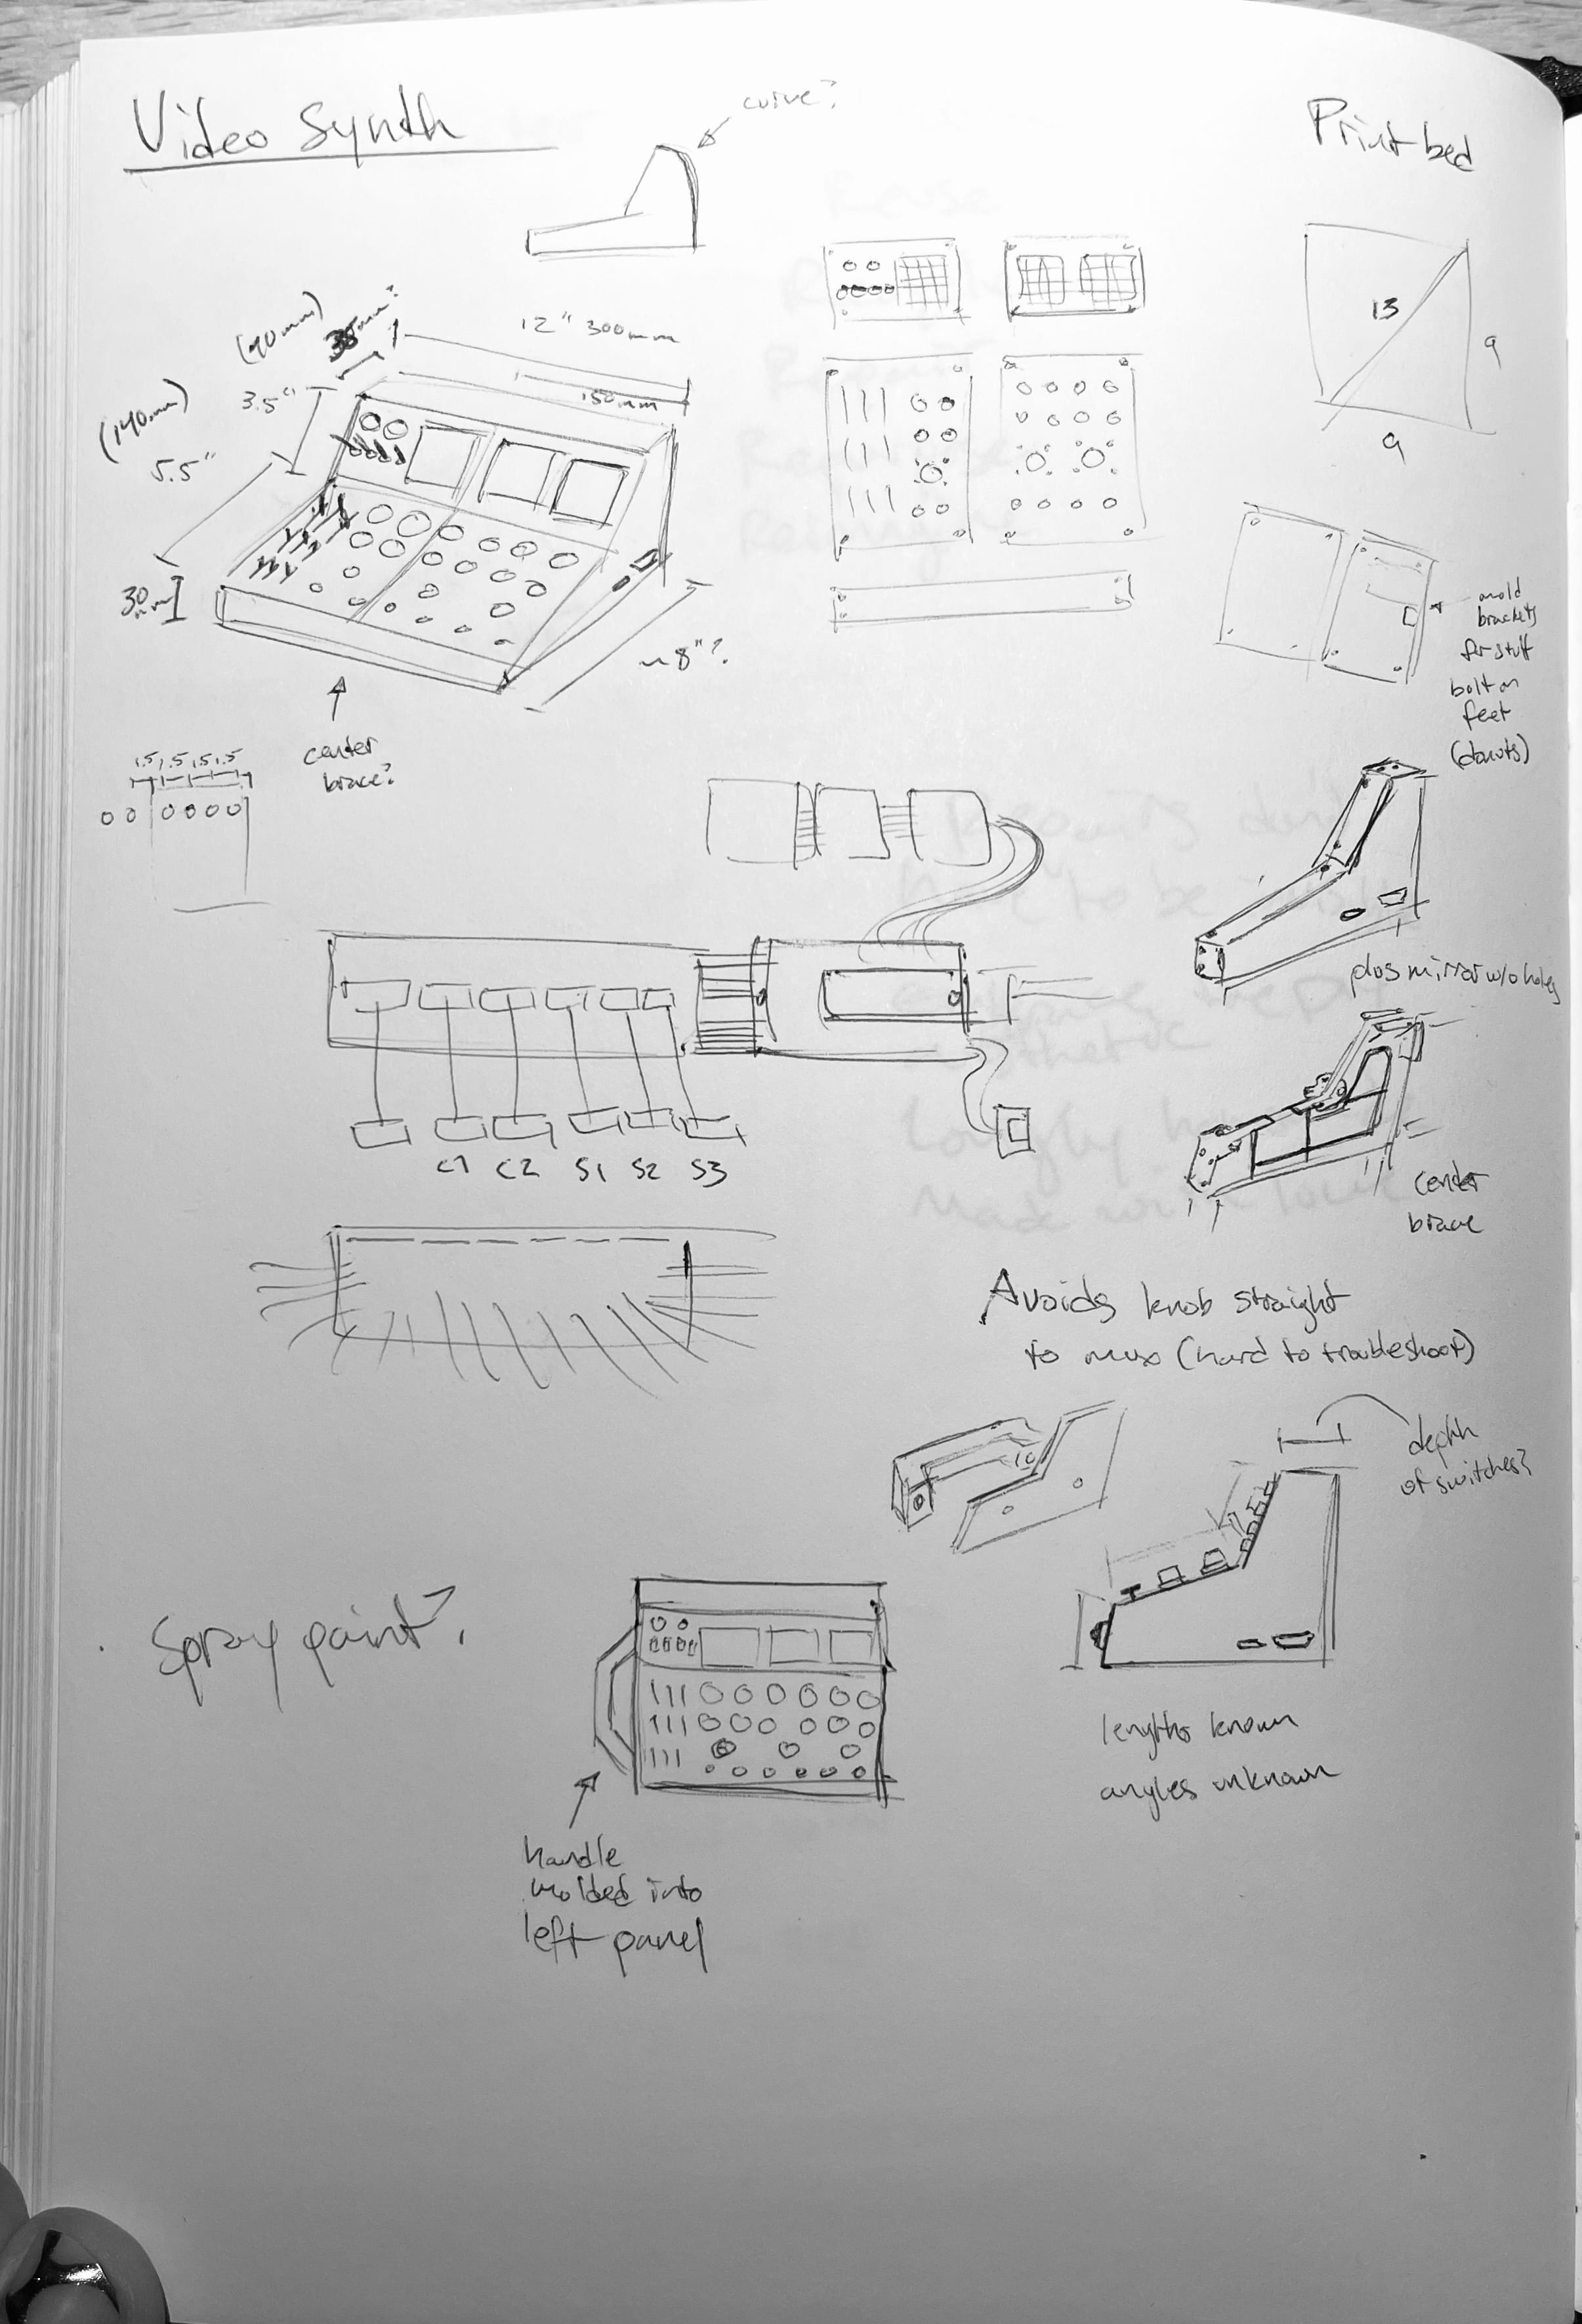 Video Synth
curve?
Print bed
(90mm)
12" 300mm
150mm
3.5"
(140mm)
5.5"
30
mm
~8"?
center
brace?
1.5 1.5 1.5 1.5
13
9
9
mold
brackets
for stuff
bolt on
feet
(donuts)
plus mirror w/o holes
C1 C2 S1 S2 S3
center
brace
Avoids knob straight
to mux (hard to troubleshoot)
depth
of switches?
Spray paint?
lengths known
angles unknown
handle
molded into
left panel